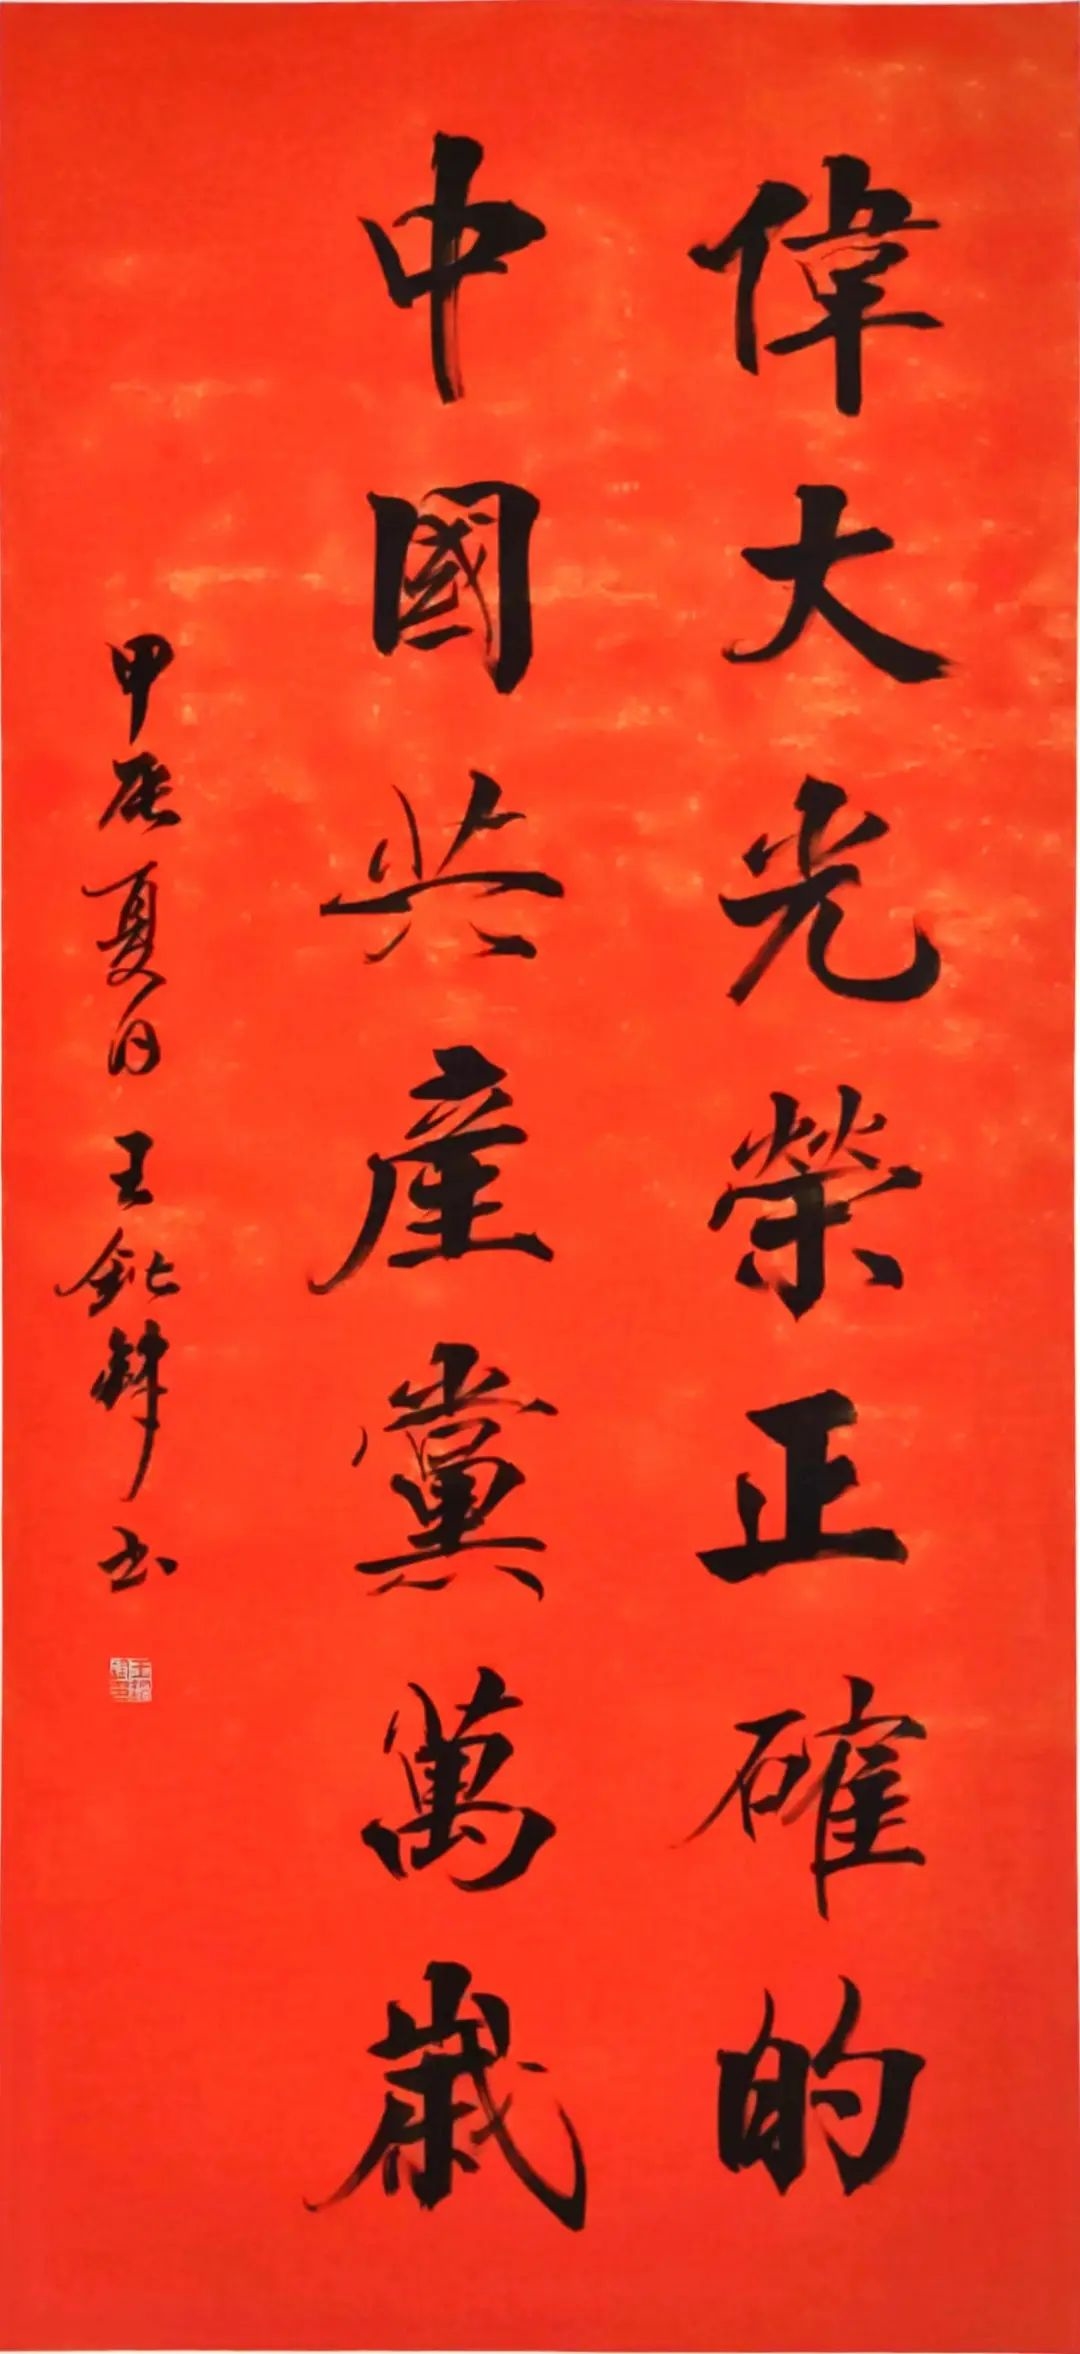 偉大光榮正確的
中國共產黨萬歲
甲辰夏月王
書